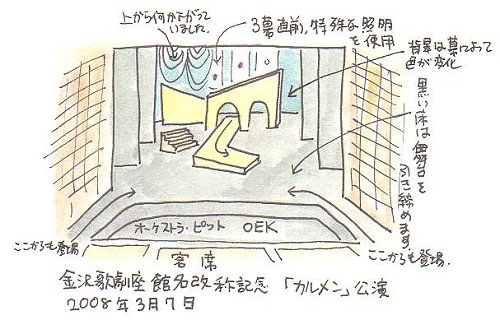 上から何かさがって
いました.
3幕直前,特殊な照明
を使用
背景は幕によって
色が変化
黒い床は舞台を
引き締めます.
オーケストラ・ピット OEK
ここからも登場
ここからも登場.
客席
金沢歌劇座 館名改称記念 「カルメン」公演
2008年3月7日